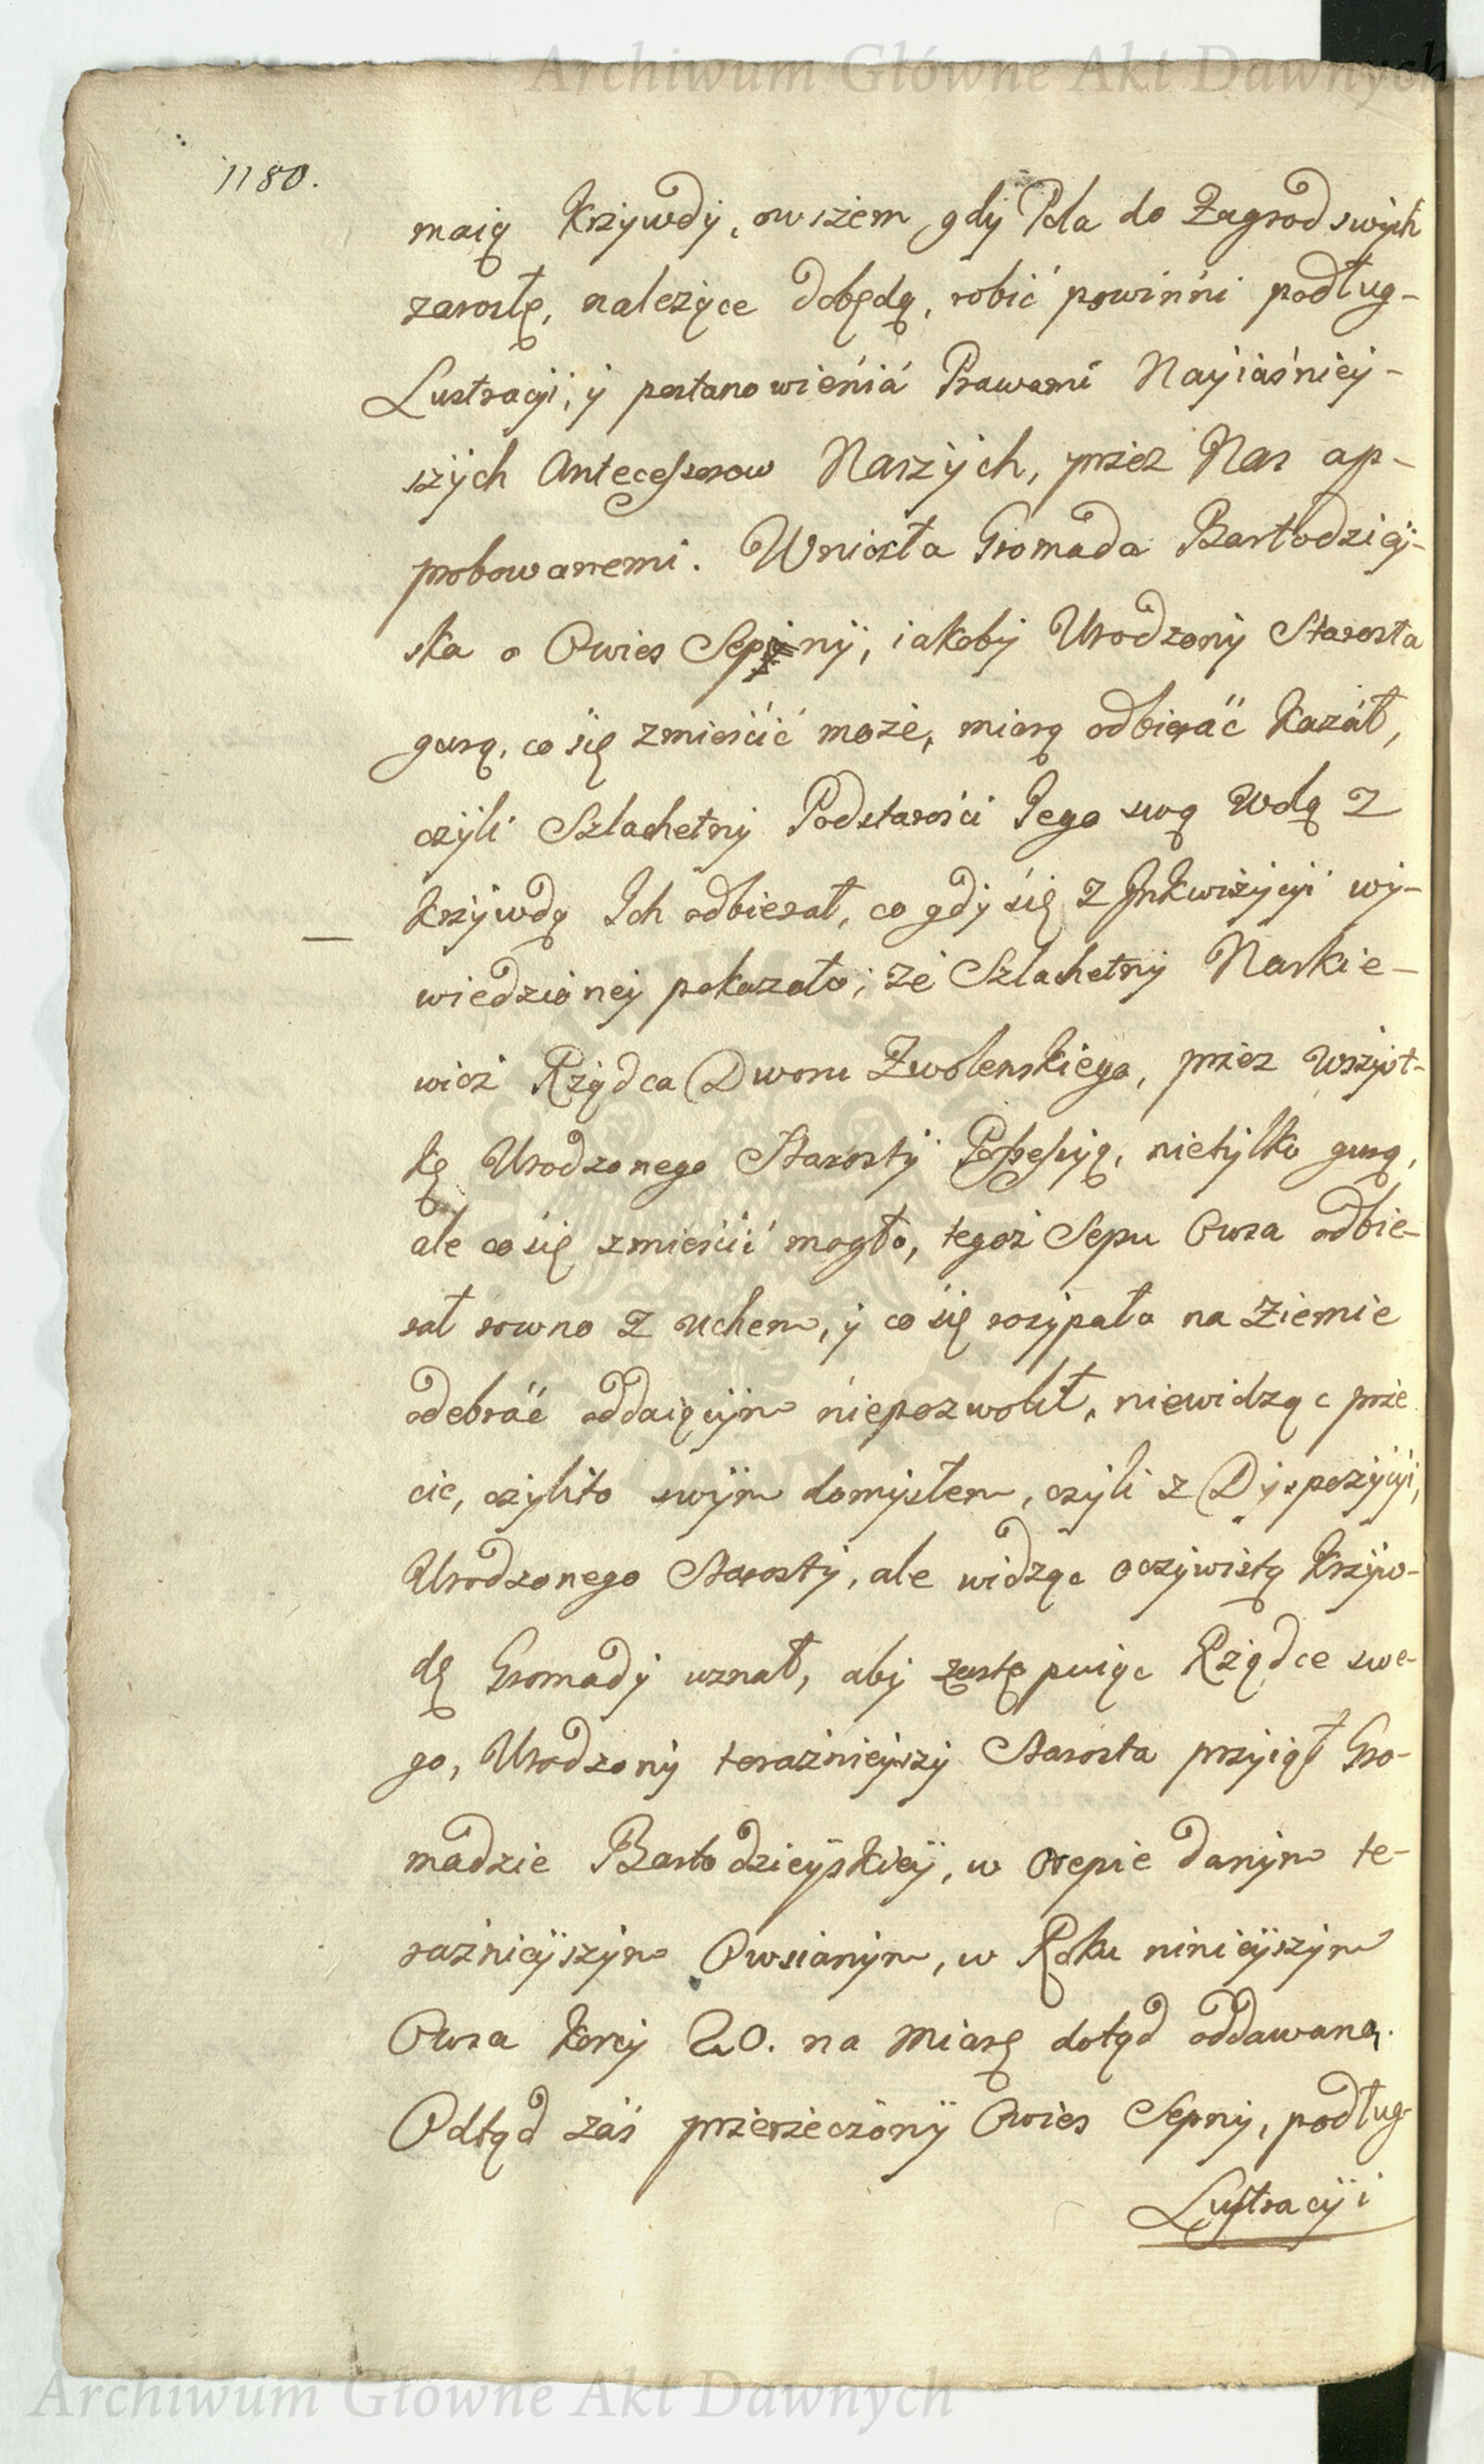 Archiwum Główne Akt Dawnych
1180.
maią Krzywdy, owszem gdy Pola do Zagrod swych
zarosłę, należące dobędą, robić powinni podług-
Lustracyi, y postanowienia Prawami Nayiaśniey-
szych Antecessorow Naszych, przez Nas ap-
probowanemi. Wniosła Gromada Bartodziey-
ska o Owies Sepny, iakoby Urodzony Starosta
gurą, co się zmieścić może, miarą odbierać Kazał,
czyli Szlachetny Podstarości Jego swą Wolą z
Krzywdą Ich odbierał, co gdy się z Jnkwizycyi wy-
wiedzioney pokazało, że Szlachetny Naskie-
wicz Rządca Dworu Zwolenskiego, przez Wszyst-
kę Urodzonego Starosty Possessyą, nietylko gurą,
ale co się zmieścić mogło, tegoż Sepu Owsa odbie-
rał rowno z uchem, y co się rozypało na ziemie
odebrać oddaiącym niepozwolił, niewidząc prze
cie, czylito swym domysłem, czyli z Dyspozycyi,
Urodzonego Starosty, ale widząc oczywistą Krzyw-
dę Gromady uznał, aby zastępuiąc Rządce swe-
go, Urodzony teraznieyszy Starosta przyiął Gro-
madzie Bartodzieyskiey, w Osepie danym te-
raznieyszym Owsianym, w Roku ninieyszym
Owsa Korcy 20. na Miarę dotąd oddawaną.
Odtąd zaś przerzeczony Owies Sepny, podług-
Lustracyi
Archiwum Główne Akt Dawnych